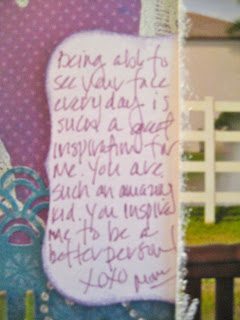 Being able to
see your face
everyday is
such a great
inspiration for
me. You are
such an amazing
kid. You inspire
me to be a
better person!
XOXO Mom